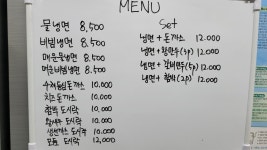 MENU
물냉면 8,500
비빔냉면 8,500
매운물냉면 8,500
매운비빔냉면 8,500
수제등심돈까스 10,000
치즈돈까스 10,000
함박 도시락 10,000
왕새우 도시락 10,000
생선까스 도시락 10,000
모듬 도시락 12,000
Set
냉면 + 돈까스 12.000
냉면 + 왕만두(3p) 12.000
냉면 + 갈비만두(5p) 12.000
냉면 + 함박(2p) 12.000